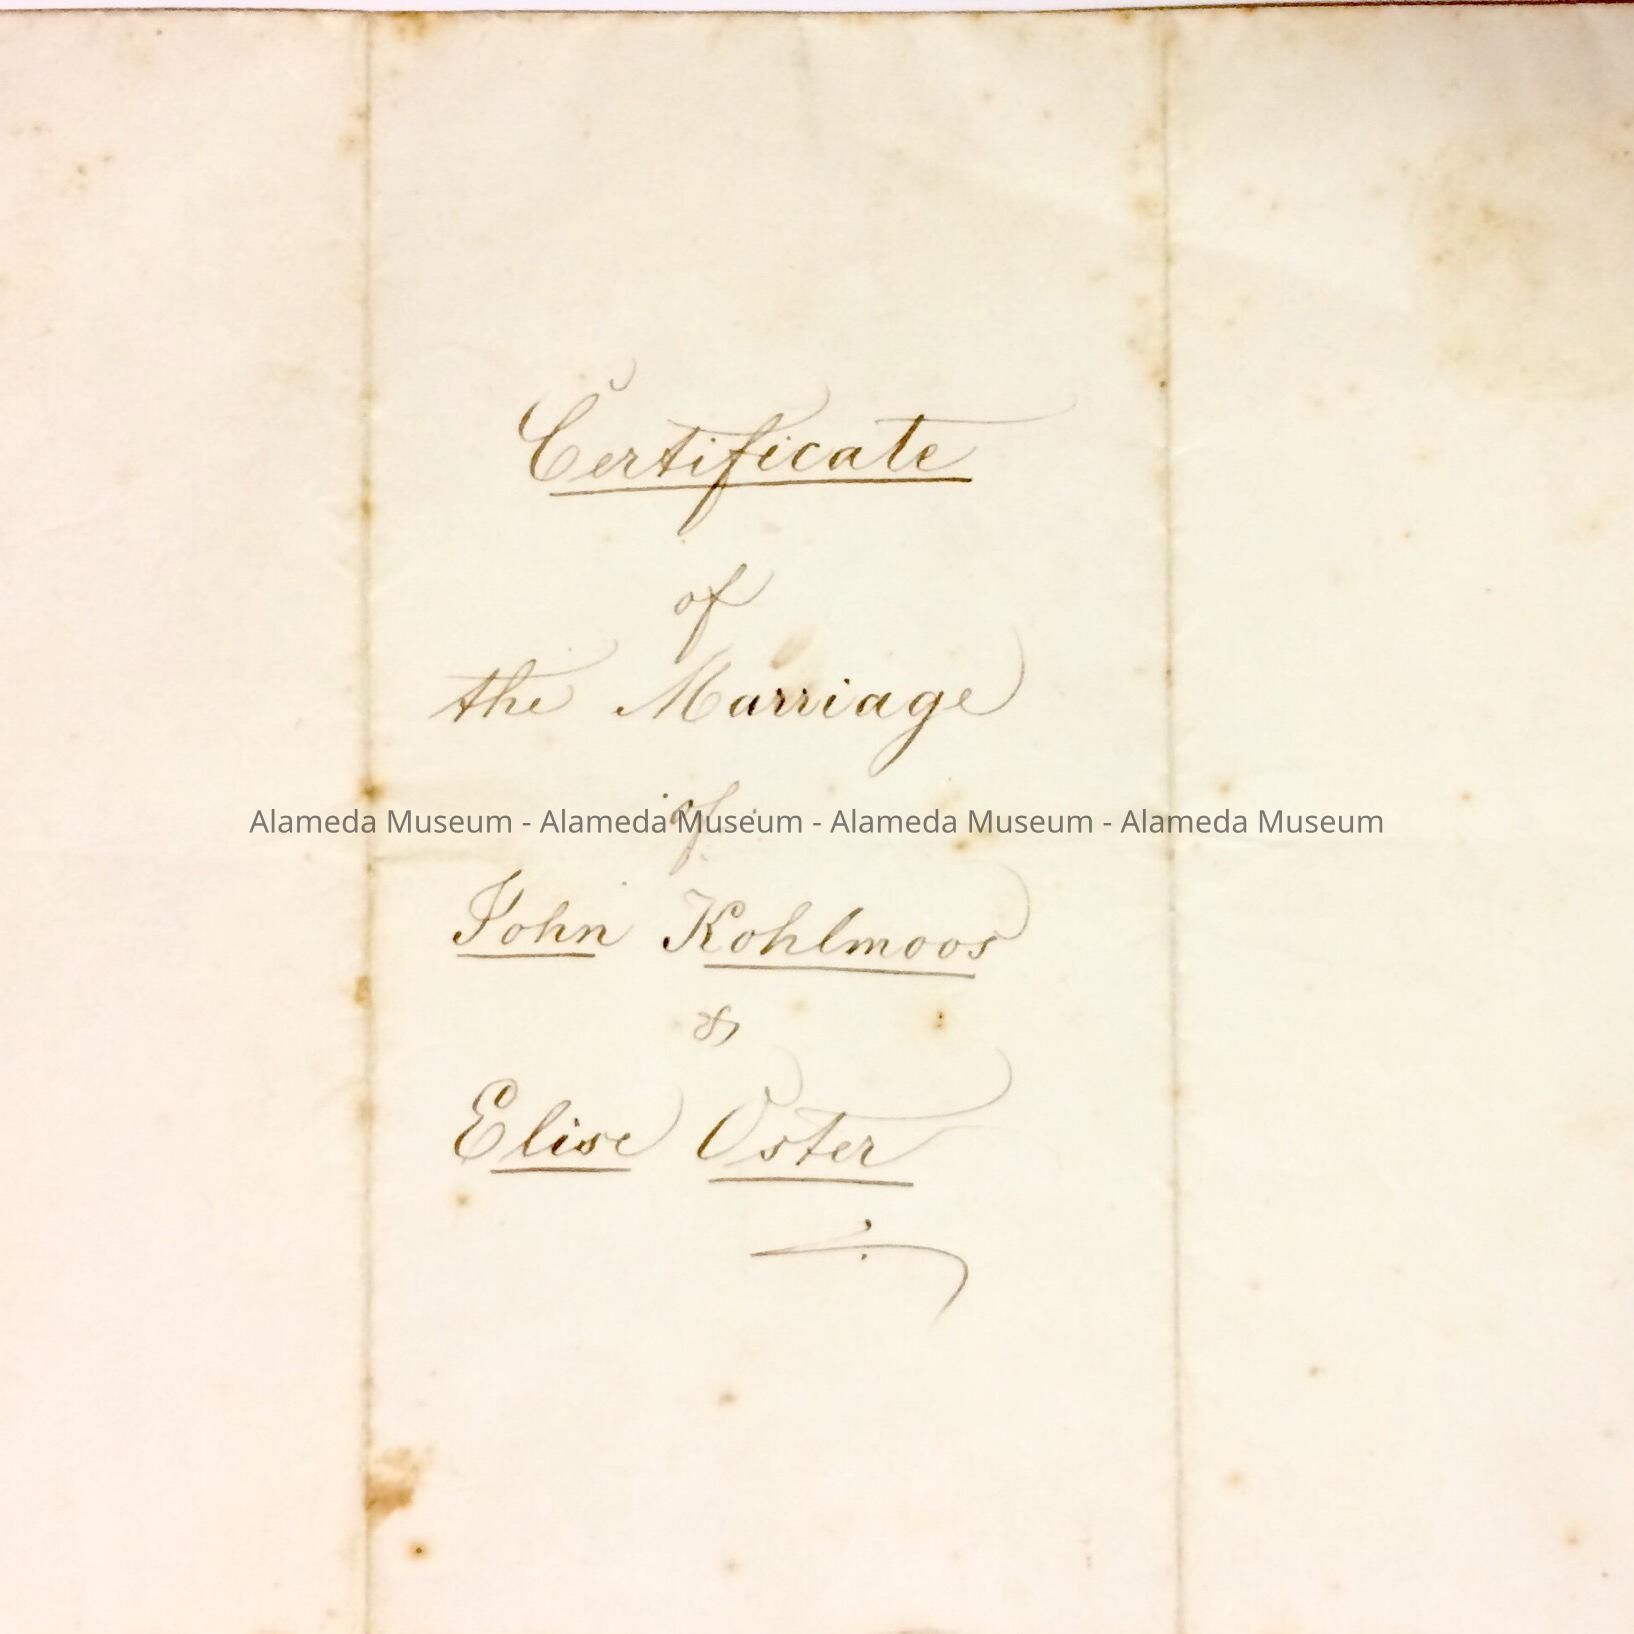 Certificate
of
the Marriage
of
Alameda Museum - Alameda Museum - Alameda Museum - Alameda Museum
John Kohlmoos
&
Elise Oster